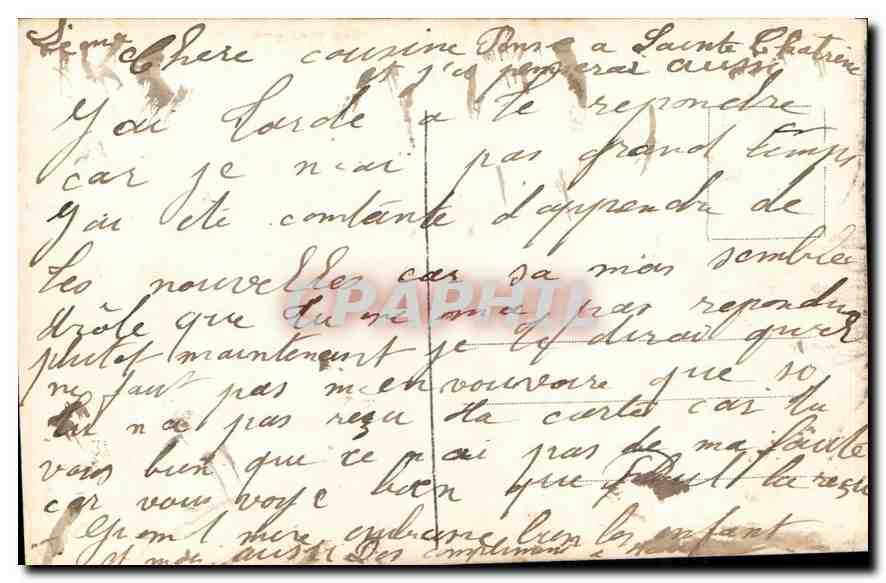 Chere cousine Pense a Sainte Chatrine
et j'i penserai aussi
J'ai tarde a te repondre
car je n'ai pas grand temps
J'ai ete contente d'apprendre de
tes nouvelles car sa mas semblee
drôle que tu ne mai pas repondu
plutot maintenant je te dirai qu'il
ne faut pas m'en vouvoire que si
tu n'a pas reçu ta carte car tu
vois bien que ce n'ai pas de ma faute
car vous voye bien que la reçu
mere embrasse bien les enfant
et moi aussi Des compliment a
CPAPHIL